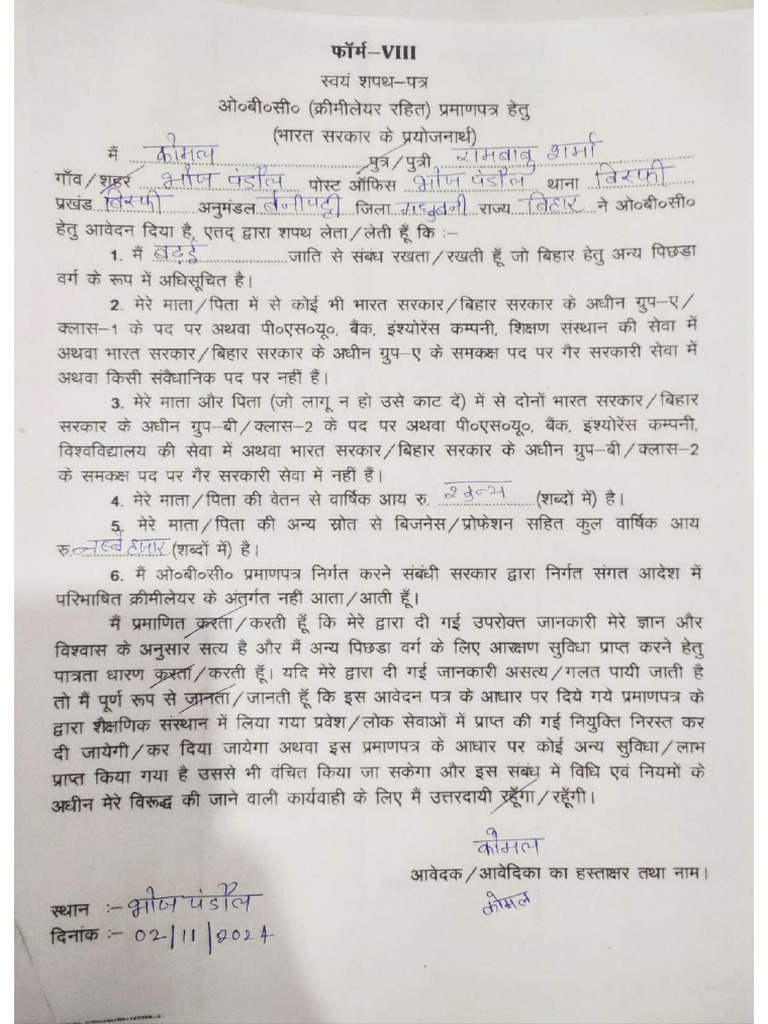 फॉर्म–VIII
स्वयं शपथ–पत्र
ओ०बी०सी० (क्रीमीलेयर रहित) प्रमाणपत्र हेतु
(भारत सरकार के प्रयोजनार्थ)
मैं कोमल पुत्र/पुत्री रामबाबु शर्मा
गाँव/शहर भोज पंडौल पोस्ट ऑफिस भोज पंडौल थाना बिस्फी
प्रखंड बिस्फी अनुमंडल बेनीपट्टी जिला मधुबनी राज्य बिहार ने ओ०बी०सी०
हेतु आवेदन दिया है, एतद् द्वारा शपथ लेता/लेती हूँ कि :–
1. मैं बढ़ई जाति से संबंध रखता/रखती हूँ जो बिहार हेतु अन्य पिछड़ा
वर्ग के रूप में अधिसूचित है।
2. मेरे माता/पिता में से कोई भी भारत सरकार/बिहार सरकार के अधीन ग्रुप–ए/
क्लास–1 के पद पर अथवा पी०एस०यू०, बैंक, इंश्योरेंस कम्पनी, शिक्षण संस्थान की सेवा में
अथवा भारत सरकार/बिहार सरकार के अधीन ग्रुप–ए के समकक्ष पद पर गैर सरकारी सेवा में
अथवा किसी संवैधानिक पद पर नहीं हैं।
3. मेरे माता और पिता (जो लागू न हो उसे काट दें) में से दोनों भारत सरकार/बिहार
सरकार के अधीन ग्रुप–बी/क्लास–2 के पद पर अथवा पी०एस०यू०, बैंक, इंश्योरेंस कम्पनी,
विश्वविद्यालय की सेवा में अथवा भारत सरकार/बिहार सरकार के अधीन ग्रुप–बी/क्लास–2
के समकक्ष पद पर गैर सरकारी सेवा में नहीं हैं।
4. मेरे माता/पिता की वेतन से वार्षिक आय रु. शुन्य (शब्दों में) है।
5. मेरे माता/पिता की अन्य स्रोत से बिजनेस/प्रोफेशन सहित कुल वार्षिक आय
रु. नब्बे हजार (शब्दों में) है।
6. मैं ओ०बी०सी० प्रमाणपत्र निर्गत करने संबंधी सरकार द्वारा निर्गत संगत आदेश में
परिभाषित क्रीमीलेयर के अंतर्गत नहीं आता/आती हूँ।
मैं प्रमाणित करता/करती हूँ कि मेरे द्वारा दी गई उपरोक्त जानकारी मेरे ज्ञान और
विश्वास के अनुसार सत्य है और मैं अन्य पिछड़ा वर्ग के लिए आरक्षण सुविधा प्राप्त करने हेतु
पात्रता धारण करता/करती हूँ। यदि मेरे द्वारा दी गई जानकारी असत्य/गलत पायी जाती है
तो मैं पूर्ण रूप से जानता/जानती हूँ कि इस आवेदन पत्र के आधार पर दिये गये प्रमाणपत्र के
द्वारा शैक्षणिक संस्थान में लिया गया प्रवेश/लोक सेवाओं में प्राप्त की गई नियुक्ति निरस्त कर
दी जायेगी/कर दिया जायेगा अथवा इस प्रमाणपत्र के आधार पर कोई अन्य सुविधा/लाभ
प्राप्त किया गया है उससे भी वंचित किया जा सकेगा और इस संबंध में विधि एवं नियमों के
अधीन मेरे विरूद्ध की जाने वाली कार्यवाही के लिए मैं उत्तरदायी रहूँगा/रहूँगी।
कोमल
आवेदक/आवेदिका का हस्ताक्षर तथा नाम।
कोमल
स्थान :– भोज पंडौल
दिनांक :– 02/11/2024